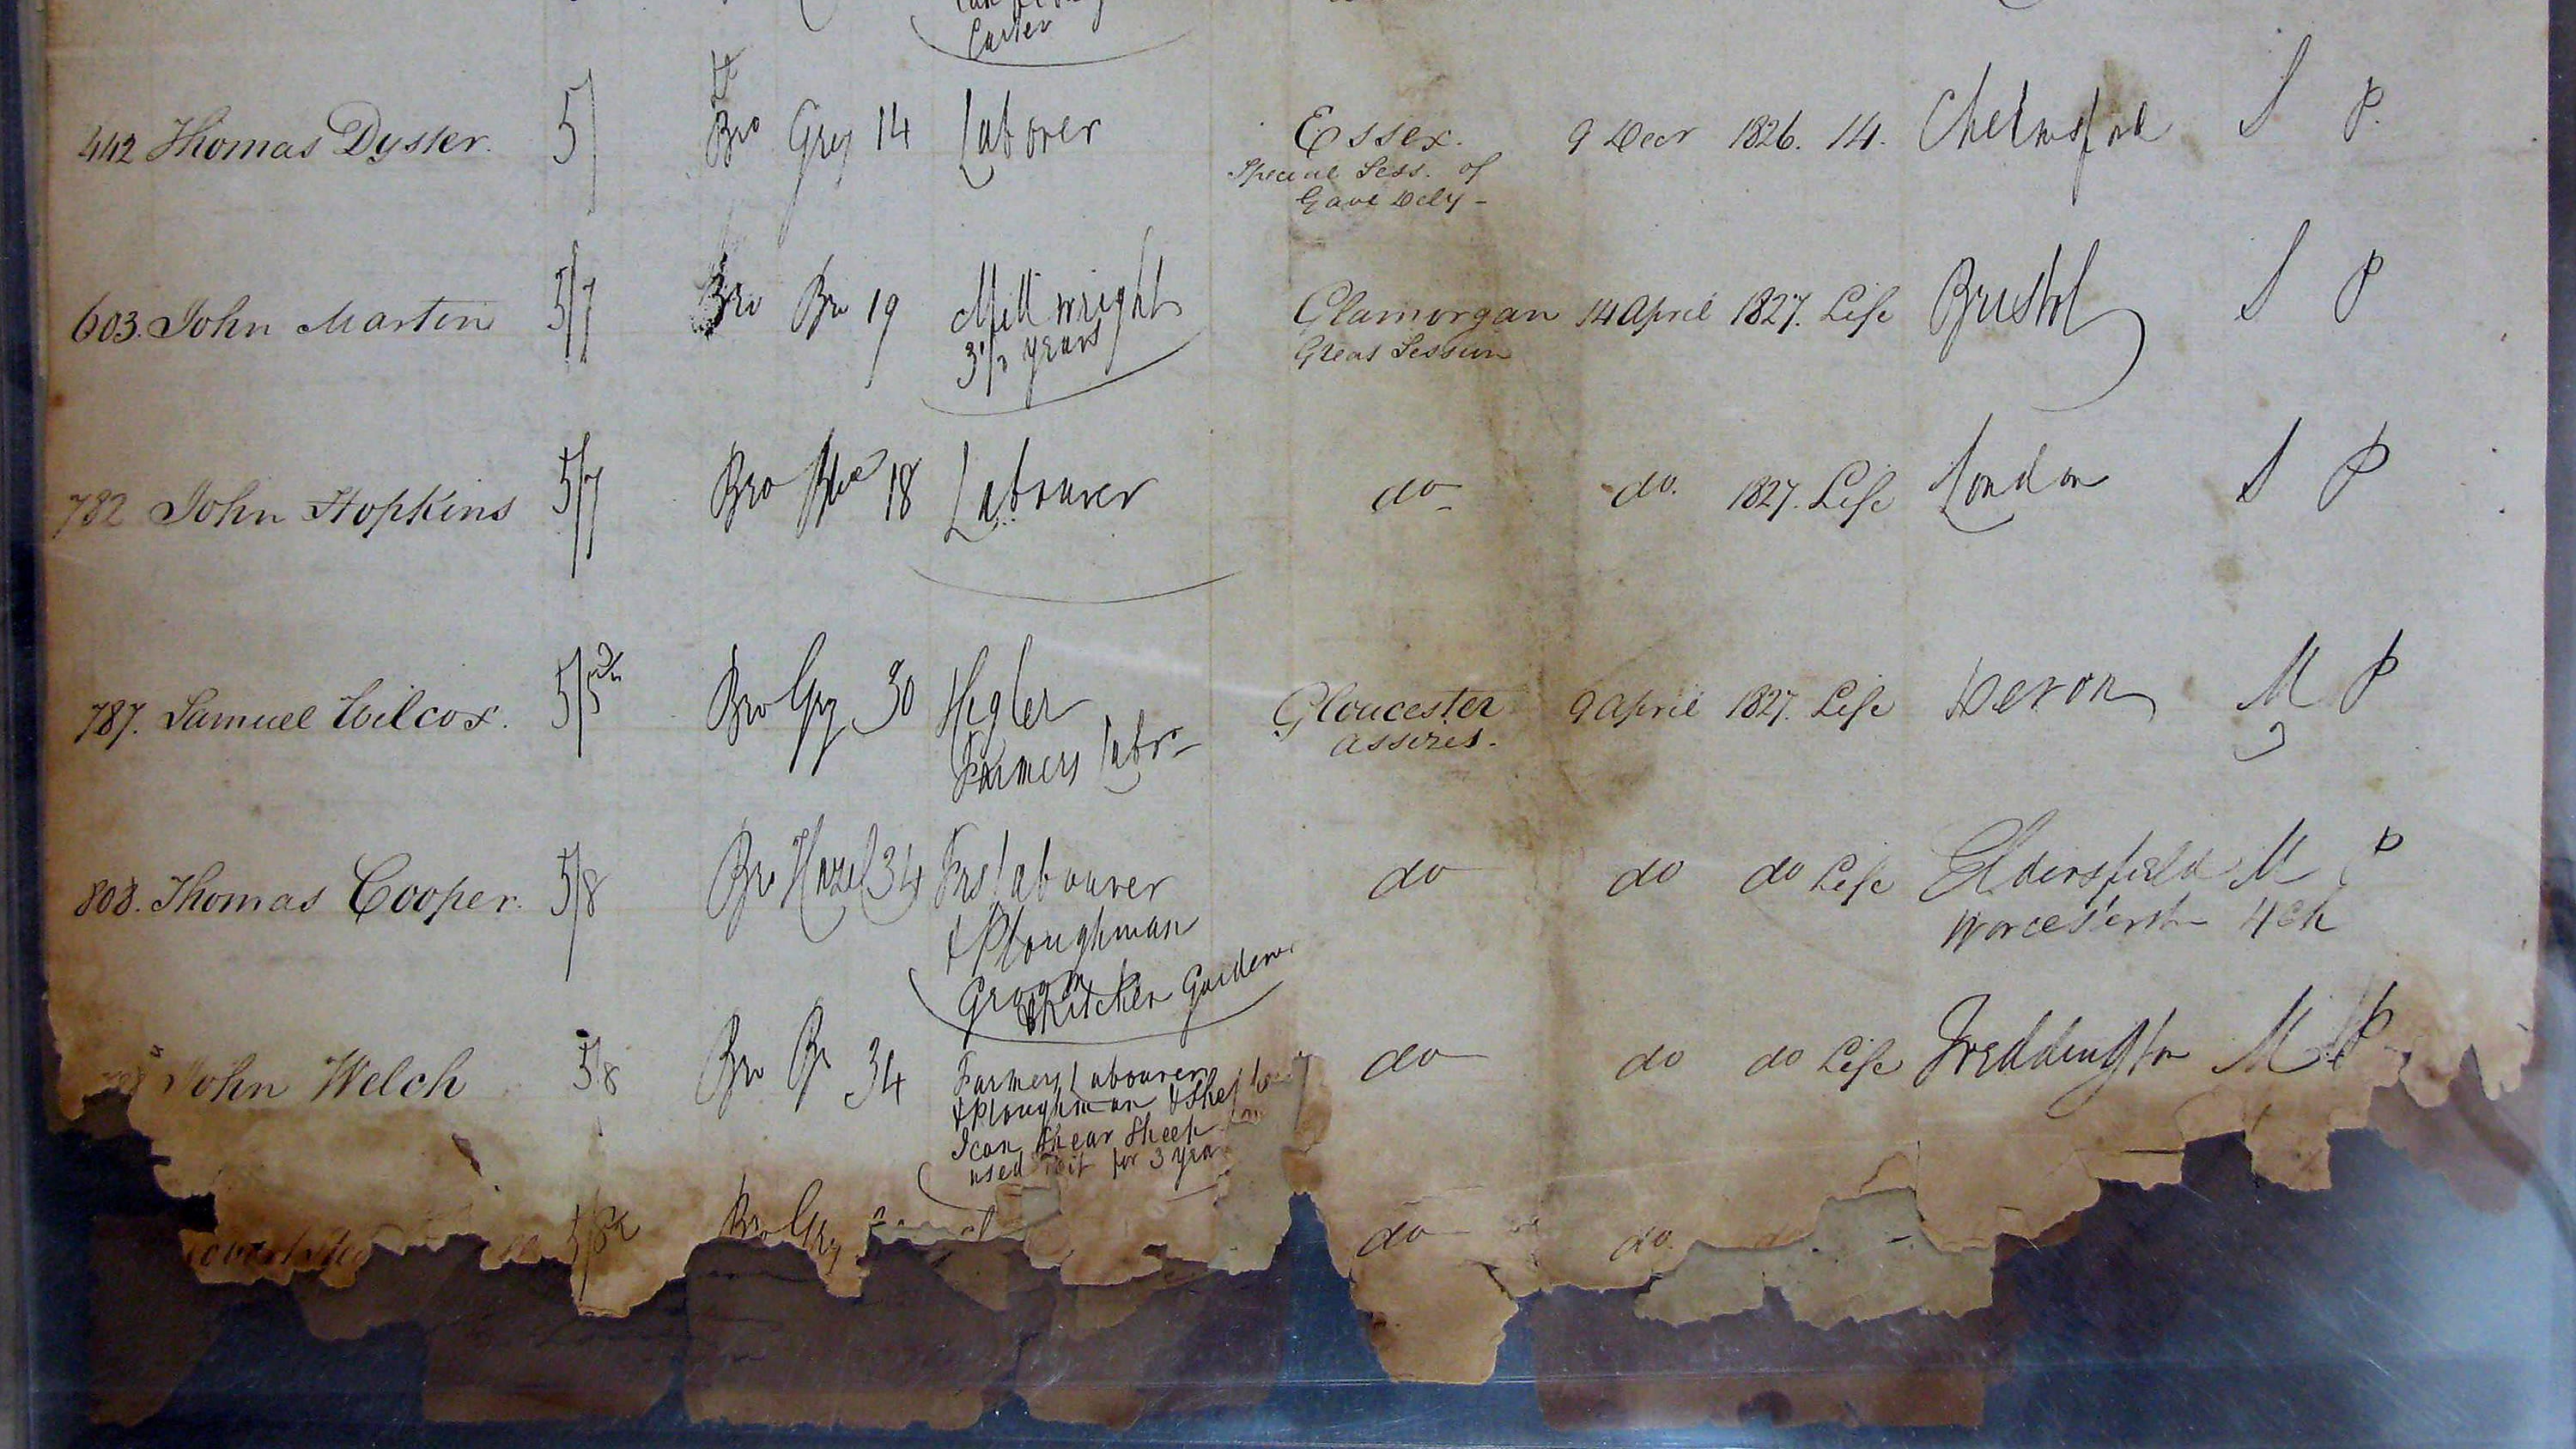 Carter
442 Thomas Dyster. 5/ Lt Bro Grey 14 Laborer Essex. 9 Decr 1826. 14. Chelmsford S P.
Special Sess. of
Gaol Dely -
603. John Martin 5/7 Bro Bro 19 Mill wright Glamorgan 14 April 1827. Life Bristol S P
3 1/2 years Great Session
782 John Hopkins 5/7 Bro Blue 18 Labourer do 1827. Life London S P
do.
787. Samuel Wilcox. 5/5 3/4 Bro Gry 30 Higler Gloucester 9 April 1827. Life Devon M P
Farmers labr Assizes. 2
808. Thomas Cooper. 5/8 Bro Hazel 34 Frs labourer do do do Life Eldersfield M P
& Ploughman Worcestersh 4 Ch
Groom
& Kitchen Gardener
John Welch 5/8 Bro Br 34 Farmers Labourer do do do Life Treddington M P
& Ploughman &
I can Shear Sheep
used to it for 3
Bro Gry do do.